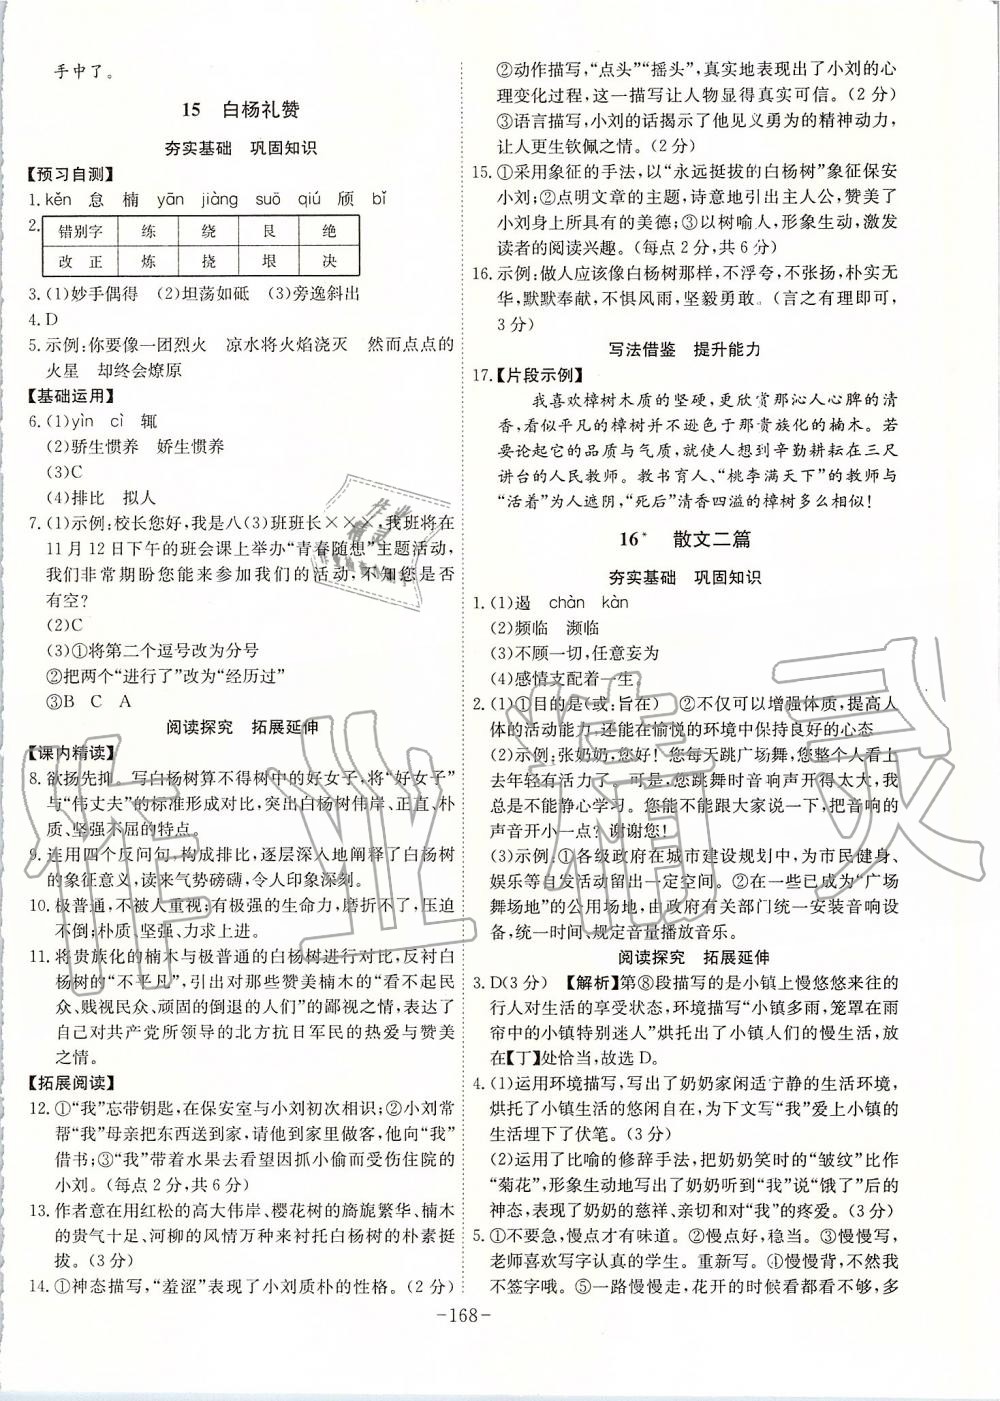 手中了。
15 白杨礼赞
夯实基础 巩固知识
【预习自测】
1.kěn 怠 楠 yān jiàng suō qiú 颀 bǐ
2.
错别字 练 绕 艮 绝
改 正 炼 挠 垠 决
3.(1)妙手偶得 (2)坦荡如砥 (3)旁逸斜出
4.D
5.示例:你要像一团烈火 凉水将火焰浇灭 然而点点的
火星 却终会燎原
【基础运用】
6.(1)yìn cì 辄
(2)骄生惯养 娇生惯养
(3)C
(4)排比 拟人
7.(1)示例:校长您好,我是八(3)班班长×××,我班将在
11月12日下午的班会课上举办“青春随想”主题活动,
我们非常期盼您能来参加我们的活动,不知您是否
有空?
(2)C
(3)①将第二个逗号改为分号
②把两个“进行了”改为“经历过”
③B C A
阅读探究 拓展延伸
【课内精读】
8.欲扬先抑 写白杨树算不得树中的好女子,将“好女子”
与“伟丈夫”的标准形成对比,突出白杨树伟岸、正直、朴
质、坚强不屈的特点。
9.连用四个反问句,构成排比,逐层深入地阐释了白杨树
的象征意义,读来气势磅礴,令人印象深刻。
10.极普通,不被人重视;有极强的生命力,磨折不了,压迫
不倒;朴质、坚强、力求上进。
11.将贵族化的楠木与极普通的白杨树进行对比,反衬白
杨树的“不平凡”,引出对那些赞美楠木的“看不起民
众、贱视民众、顽固的倒退的人们”的鄙视之情,表达了
自己对共产党所领导的北方抗日军民的热爱与赞美
之情。
【拓展阅读】
12.①“我”忘带钥匙,在保安室与小刘初次相识;②小刘常
帮“我”母亲把东西送到家,请他到家里做客,他向“我”
借书;③“我”带着水果去看望因抓小偷而受伤住院的
小刘。(每点2分,共6分)
13.作者意在用红松的高大伟岸、樱花树的旖旎繁华、楠木
的贵气十足、河柳的风情万种来衬托白杨树的朴素挺
拔。(3分)
14.①神态描写,“羞涩”表现了小刘质朴的性格。(2分)
②动作描写,“点头”“摇头”,真实地表现出了小刘的心
理变化过程,这一描写让人物显得真实可信。(2分)
③语言描写,小刘的话揭示了他见义勇为的精神动力,
让人更生钦佩之情。(2分)
15.①采用象征的手法,以“永远挺拔的白杨树”象征保安
小刘;②点明文章的主题,诗意地引出主人公,赞美了
小刘身上所具有的美德;③以树喻人,形象生动,激发
读者的阅读兴趣。(每点2分,共6分)
16.示例:做人应该像白杨树那样,不浮夸,不张扬,朴实无
华,默默奉献,不惧风雨,坚毅勇敢。(言之有理即可,
3分)
写法借鉴 提升能力
17.【片段示例】
我喜欢樟树木质的坚硬,更欣赏那沁人心脾的清
香,看似平凡的樟树并不逊色于那贵族化的楠木。若
要论起它的品质与气质,就使人想到辛勤耕耘在三尺
讲台的人民教师。教书育人、“桃李满天下”的教师与
“活着”为人遮阴,“死后”清香四溢的樟树多么相似!
16* 散文二篇
夯实基础 巩固知识
1.(1)遏 chàn kàn
(2)频临 濒临
(3)不顾一切,任意妄为
(4)感情支配着一生。
2.(1)①目的是(或:旨在) ②不仅可以增强体质,提高人
体的活动能力,还能在愉悦的环境中保持良好的心态
(2)示例:张奶奶,您好!您每天跳广场舞,整个人看上
去年轻有活力了。可是,您跳舞时音响声开得太大,我
总是不能静心学习。您能不能跟大家说一下,把音响的
声音开小一点?谢谢您!
(3)示例:①各级政府在城市建设规划中,为市民健身、
娱乐等自发活动留出一定空间。②在一些已成为“广场
舞场地”的公用场地,由政府有关部门统一安装音响设
备,统一时间、规定音量播放音乐。
阅读探究 拓展延伸
3.D(3分) 【解析】第⑧段描写的是小镇上慢悠悠来往的
行人对生活的享受状态,环境描写“小镇多雨,笼罩在雨
帘中的小镇特别迷人”烘托出了小镇人们的慢生活,放
在【丁】处恰当,故选D。
4.(1)运用环境描写,写出了奶奶家闲适宁静的生活环境,
烘托了小镇生活的悠闲自在,为下文写“我”爱上小镇的
生活埋下了伏笔。(3分)
(2)运用了比喻的修辞手法,把奶奶笑时的“皱纹”比作
“菊花”,形象生动地写出了奶奶听到“我”说“饿了”后的
神态,表现了奶奶的慈祥、亲切和对“我”的疼爱。(3分)
5.①不要急,慢点才有味道。②慢点好,稳当。③慢慢写,
老师喜欢写字认真的学生。重新写。④慢慢背,你不熟我
不签字哦。⑤一路慢慢走,花开的时候看都看不够,多
-168-
作业精灵